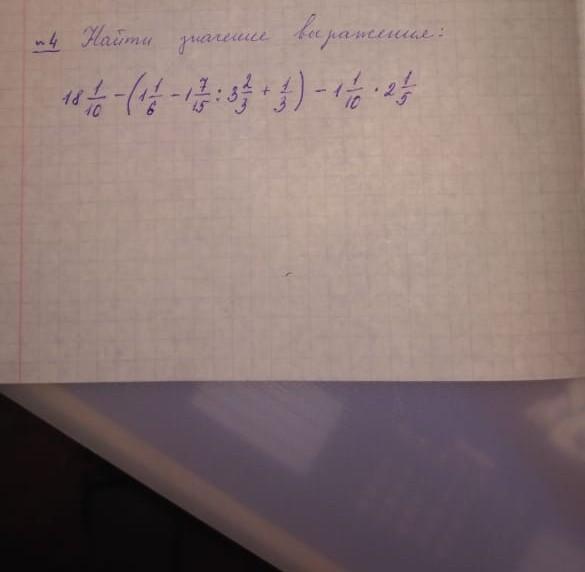 №4 Найти значение выражения:
18 1/10 - (1 1/6 - 1 7/15 : 3 2/3 + 1/3) - 1 1/10 · 2 1/5